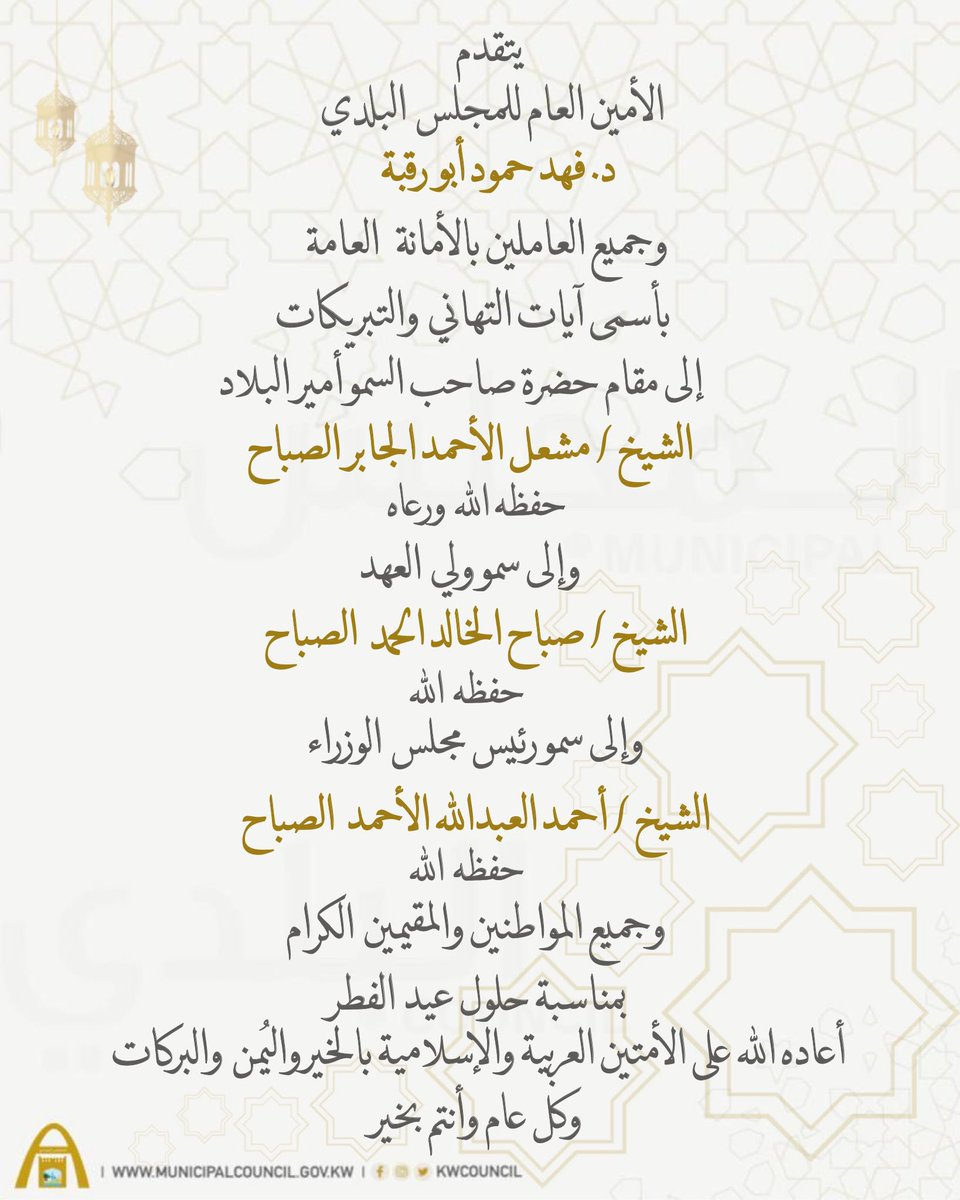 يتقدم
الأمين العام للمجلس البلدي
د. فهد حمود أبو رقبة
وجميع العاملين بالأمانة العامة
بأسمى آيات التهاني والتبريكات
إلى مقام حضرة صاحب السمو أمير البلاد
الشيخ / مشعل الأحمد الجابر الصباح
حفظه الله ورعاه
وإلى سمو ولي العهد
الشيخ / صباح الخالد الحمد الصباح
حفظه الله
وإلى سمو رئيس مجلس الوزراء
الشيخ / أحمد العبدالله الأحمد الصباح
حفظه الله
وجميع المواطنين والمقيمين الكرام
بمناسبة حلول عيد الفطر
أعاده الله على الأمتين العربية والإسلامية بالخير واليُمن والبركات
وكل عام وأنتم بخير
| WWW.MUNICIPALCOUNCIL.GOV.KW | KWCOUNCIL
MUNICIPAL
COUNCIL